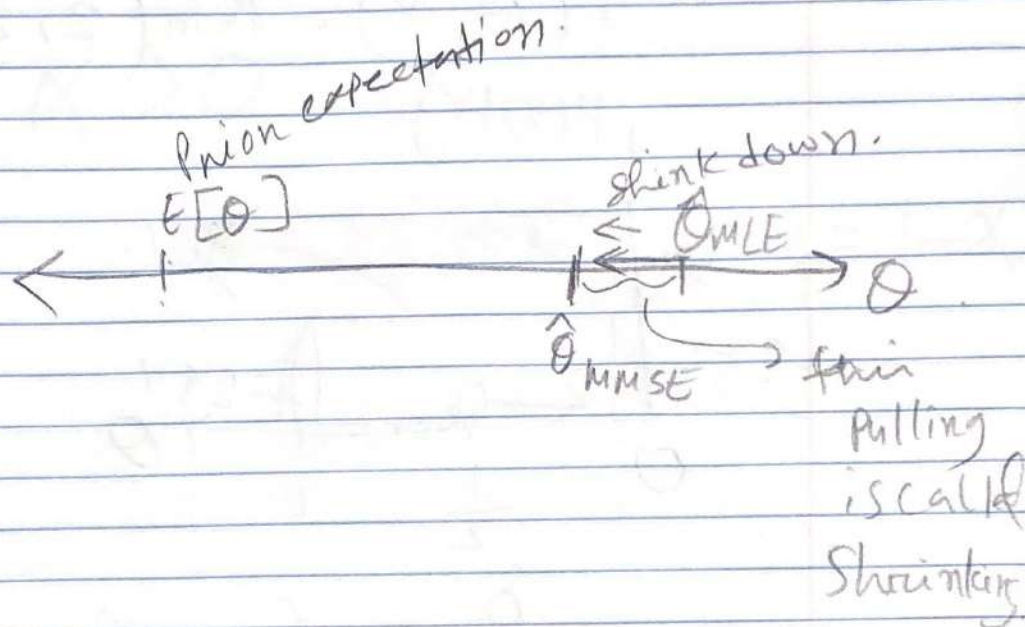 Prion expectation.
E[θ]
shink down.
← θ̂MLE
θ
θ̂MMSE
thin
Pulling
is called
Shrinking